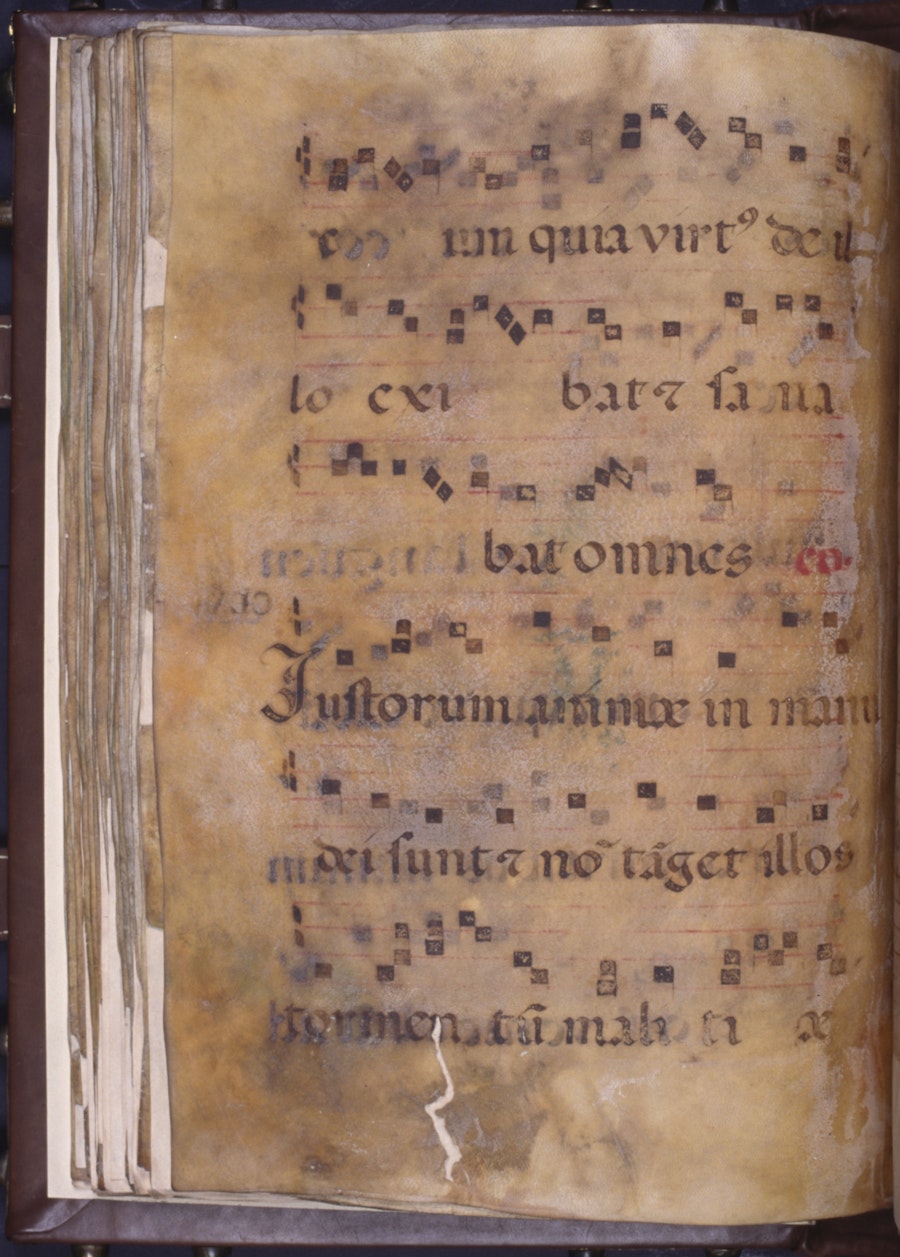 eoo ium quia virtꝰ de il
lo exi bat ⁊ sa na
bat omnes co.
Justorum animæ in manu
dei sunt ⁊ nõ tãget illos
tormen tũ mali ti æ